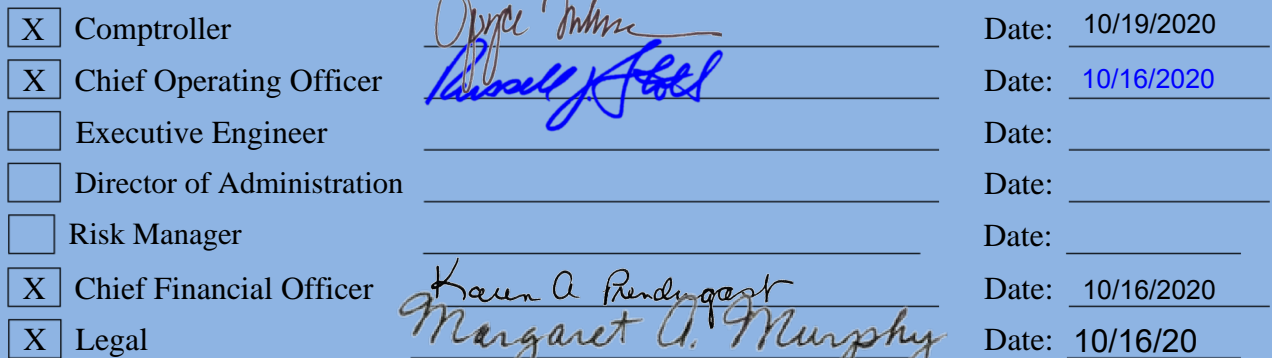 X Comptroller Date: 10/19/2020
X Chief Operating Officer Russell J. Date: 10/16/2020
Executive Engineer Date:
Director of Administration Date:
Risk Manager Date:
X Chief Financial Officer Karen A Prendergast Date: 10/16/2020
X Legal Margaret A. Murphy Date: 10/16/20